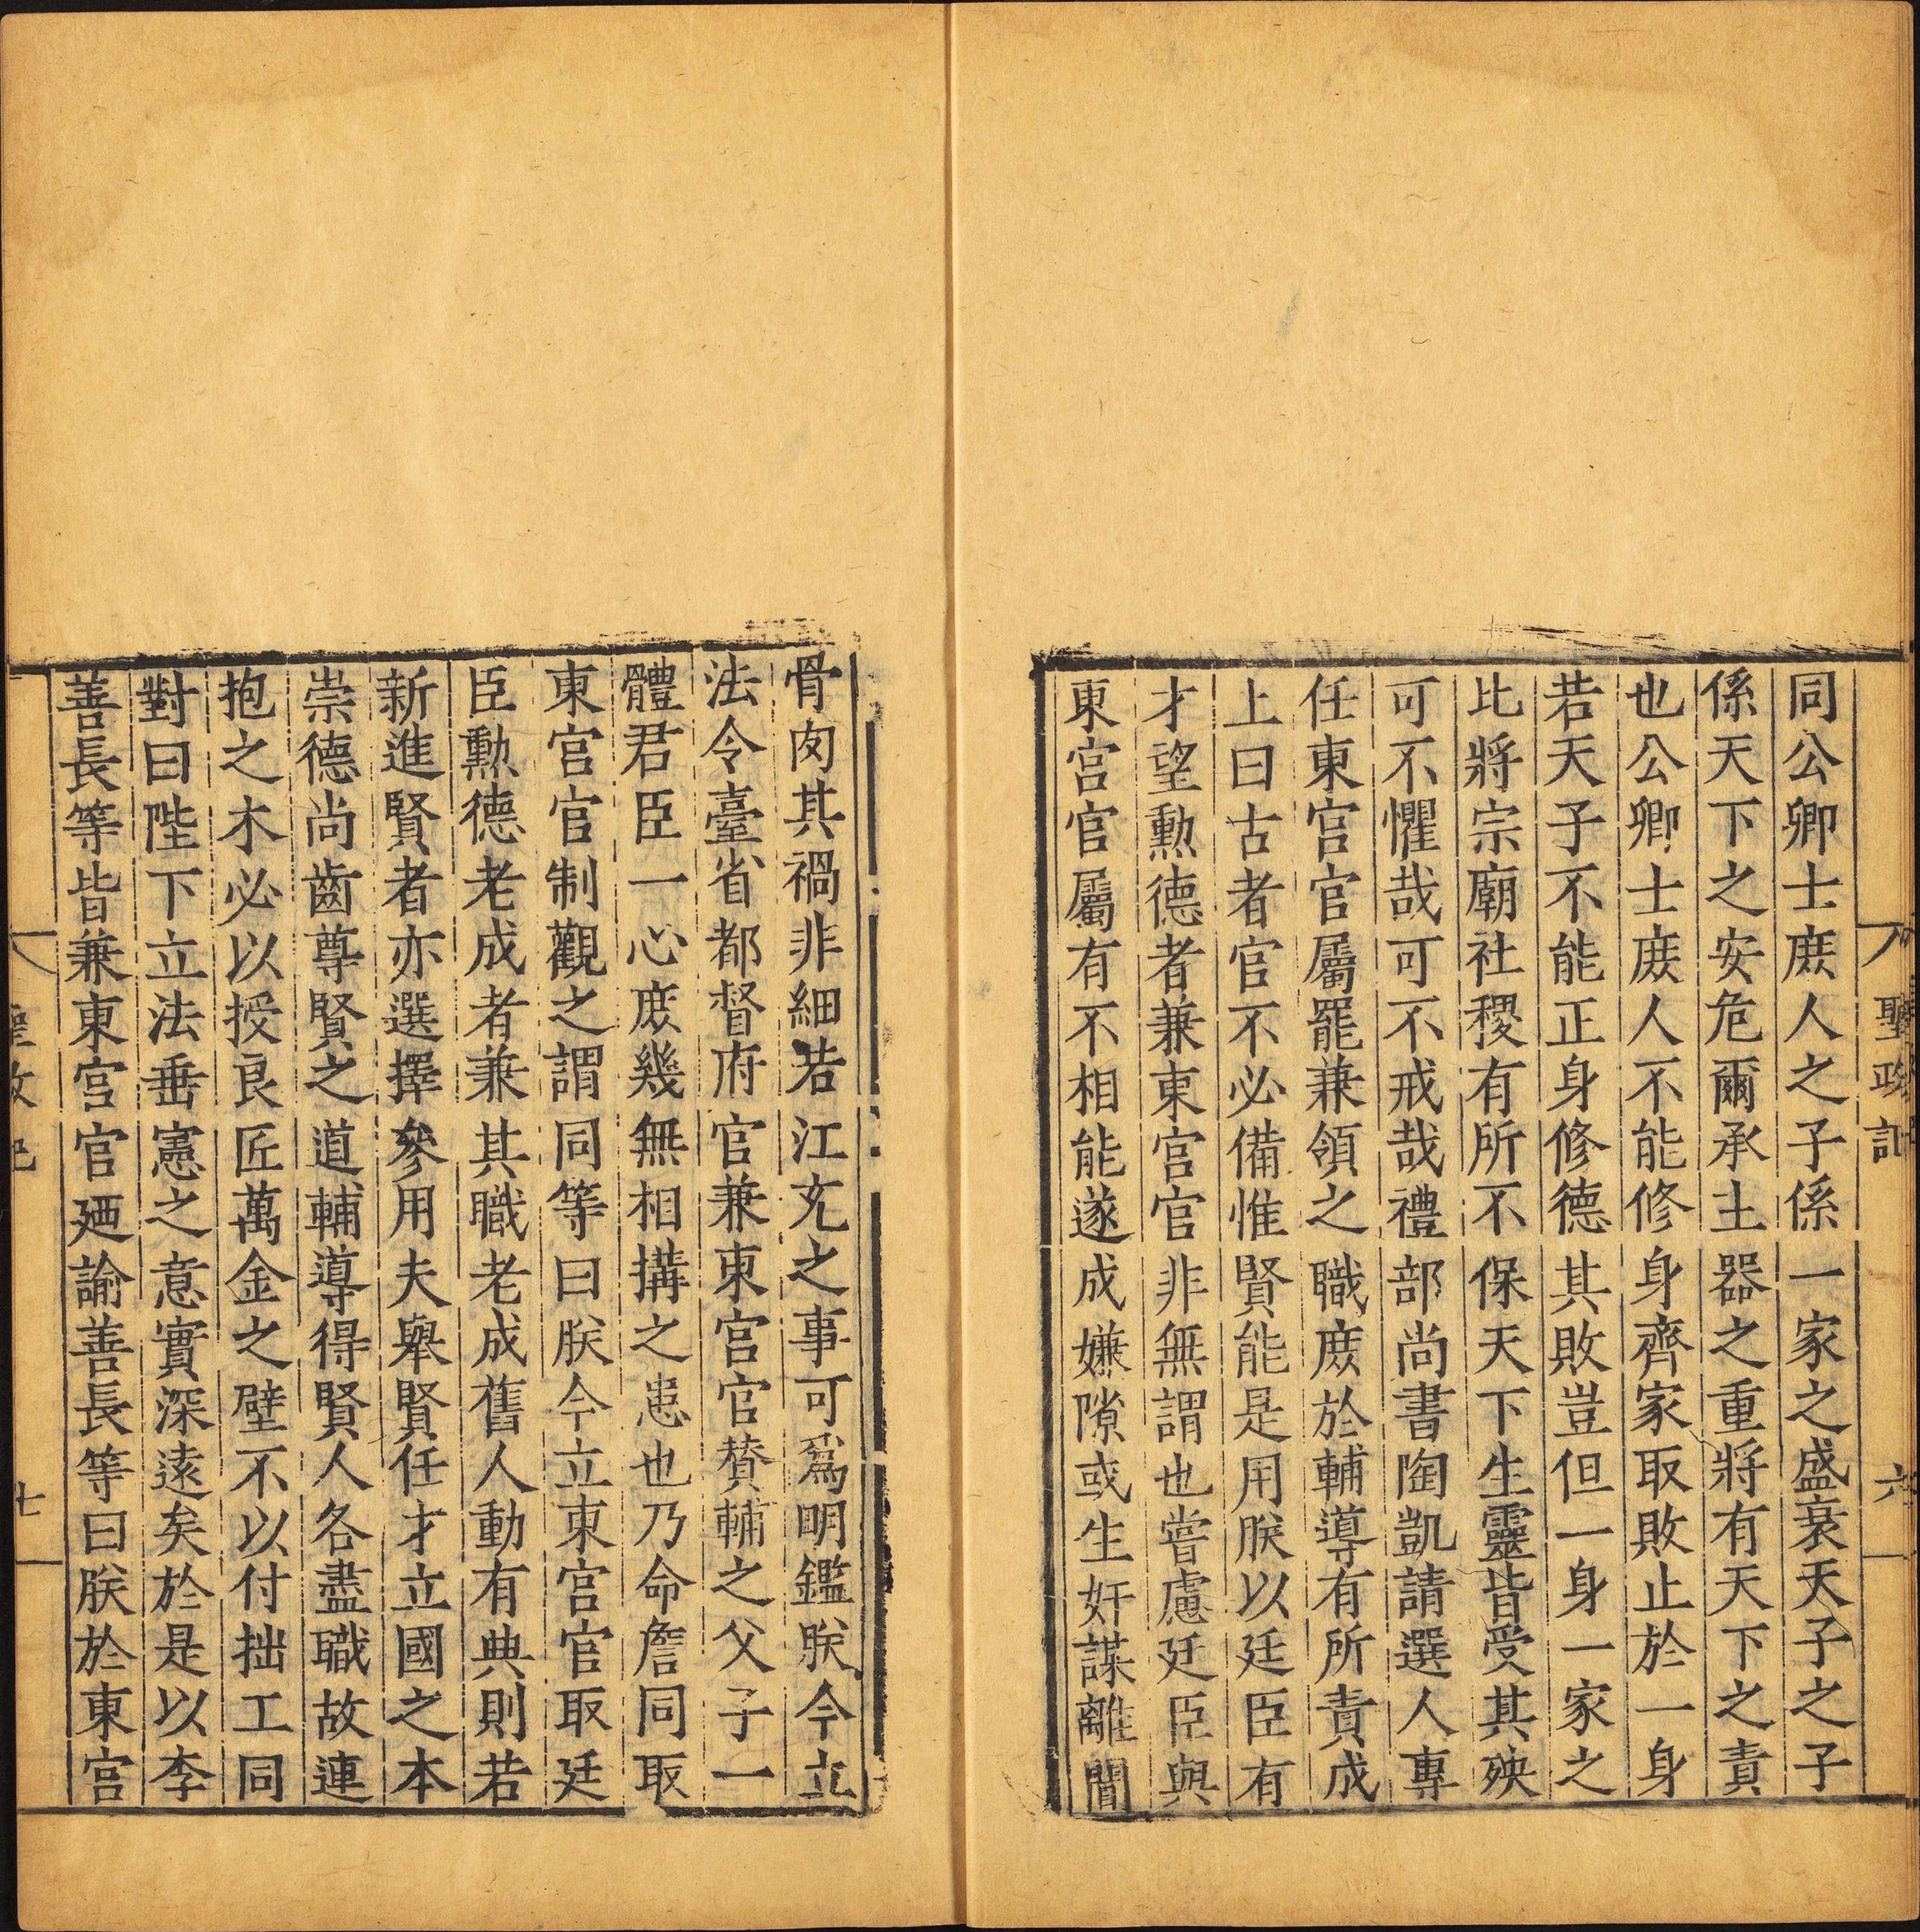 聖政記
六
同公卿士庶人之子係一家之盛衰天子之子
係天下之安危爾承主器之重將有天下之責
也公卿士庶人不能修身齊家取敗止於一身
若天子不能正身修德其敗豈但一身一家之
比將宗廟社稷有所不保天下生靈皆受其殃
可不懼哉可不戒哉禮部尚書陶凱請選人專
任東宮官屬罷兼領之職庶於輔導有所責成
上曰古者官不必備惟賢能是用朕以廷臣有
才望勳德者兼東宮官非無謂也嘗慮廷臣與
東宮官屬有不相能遂成嫌隙或生奸謀離間
骨肉其禍非細若江充之事可為明鑑朕今立
法令臺省都督府官兼東宮官贊輔之父子一
體君臣一心庶幾無相搆之患也乃命詹同取
東宮官制觀之謂同等曰朕今立東宮官取廷
臣勳德老成者兼其職老成舊人動有典則若
新進賢者亦選擇參用夫舉賢任才立國之本
崇德尚齒尊賢之道輔導得賢人各盡職故連
抱之木必以授良匠萬金之璧不以付拙工同
對曰陛下立法垂憲之意實深遠矣於是以李
善長等皆兼東宮官廼諭善長等曰朕於東宮
聖政記
七